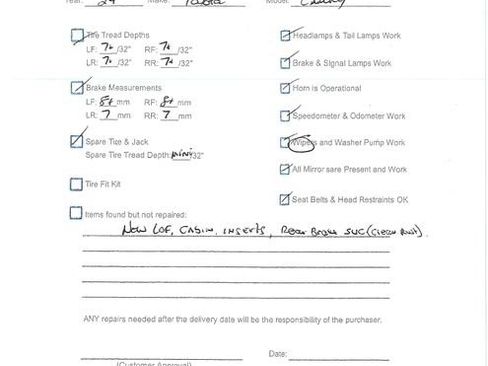 Year: 24 Make: Toyota Model: Camry
Tire Tread Depths
LF: 7+/32" RF: 7+/32"
LR: 7+/32" RR: 7+/32"
Brake Measurements
LF: 8+mm RF: 8+mm
LR: 7mm RR: 7mm
Spare Tire & Jack
Spare Tire Tread Depth: mini/32"
Tire Fit Kit
Items found but not repaired:
Headlamps & Tail Lamps Work
Brake & Signal Lamps Work
Horn is Operational
Speedometer & Odometer Work
Wipers and Washer Pump Work
All Mirror sare Present and Work
Seat Belts & Head Restraints OK
New LOF, CABIN, INSERTS, Rear Brake SVC (Clean Rust).
ANY repairs needed after the delivery date will be the responsibility of the purchaser.
Date:
(Customer Approval)